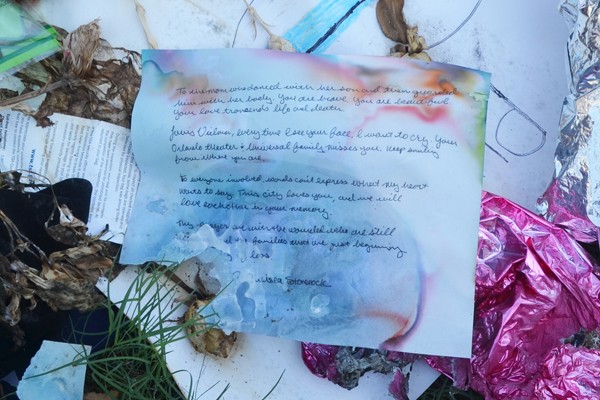 To the mom who danced with her son and then protected
him with her body. You are brave. You are beautiful.
Your love transcends life and death.
Jerry, every time I see your face, I want to cry. Your
Orlando theater & Universal family misses you. Keep smiling
from where you are.
To everyone involved, words can't express what my heart
wants to say. This city loves you, and we will
love each other in your memory.
My prayers are with the wounded who are still
families that are just beginning
loss